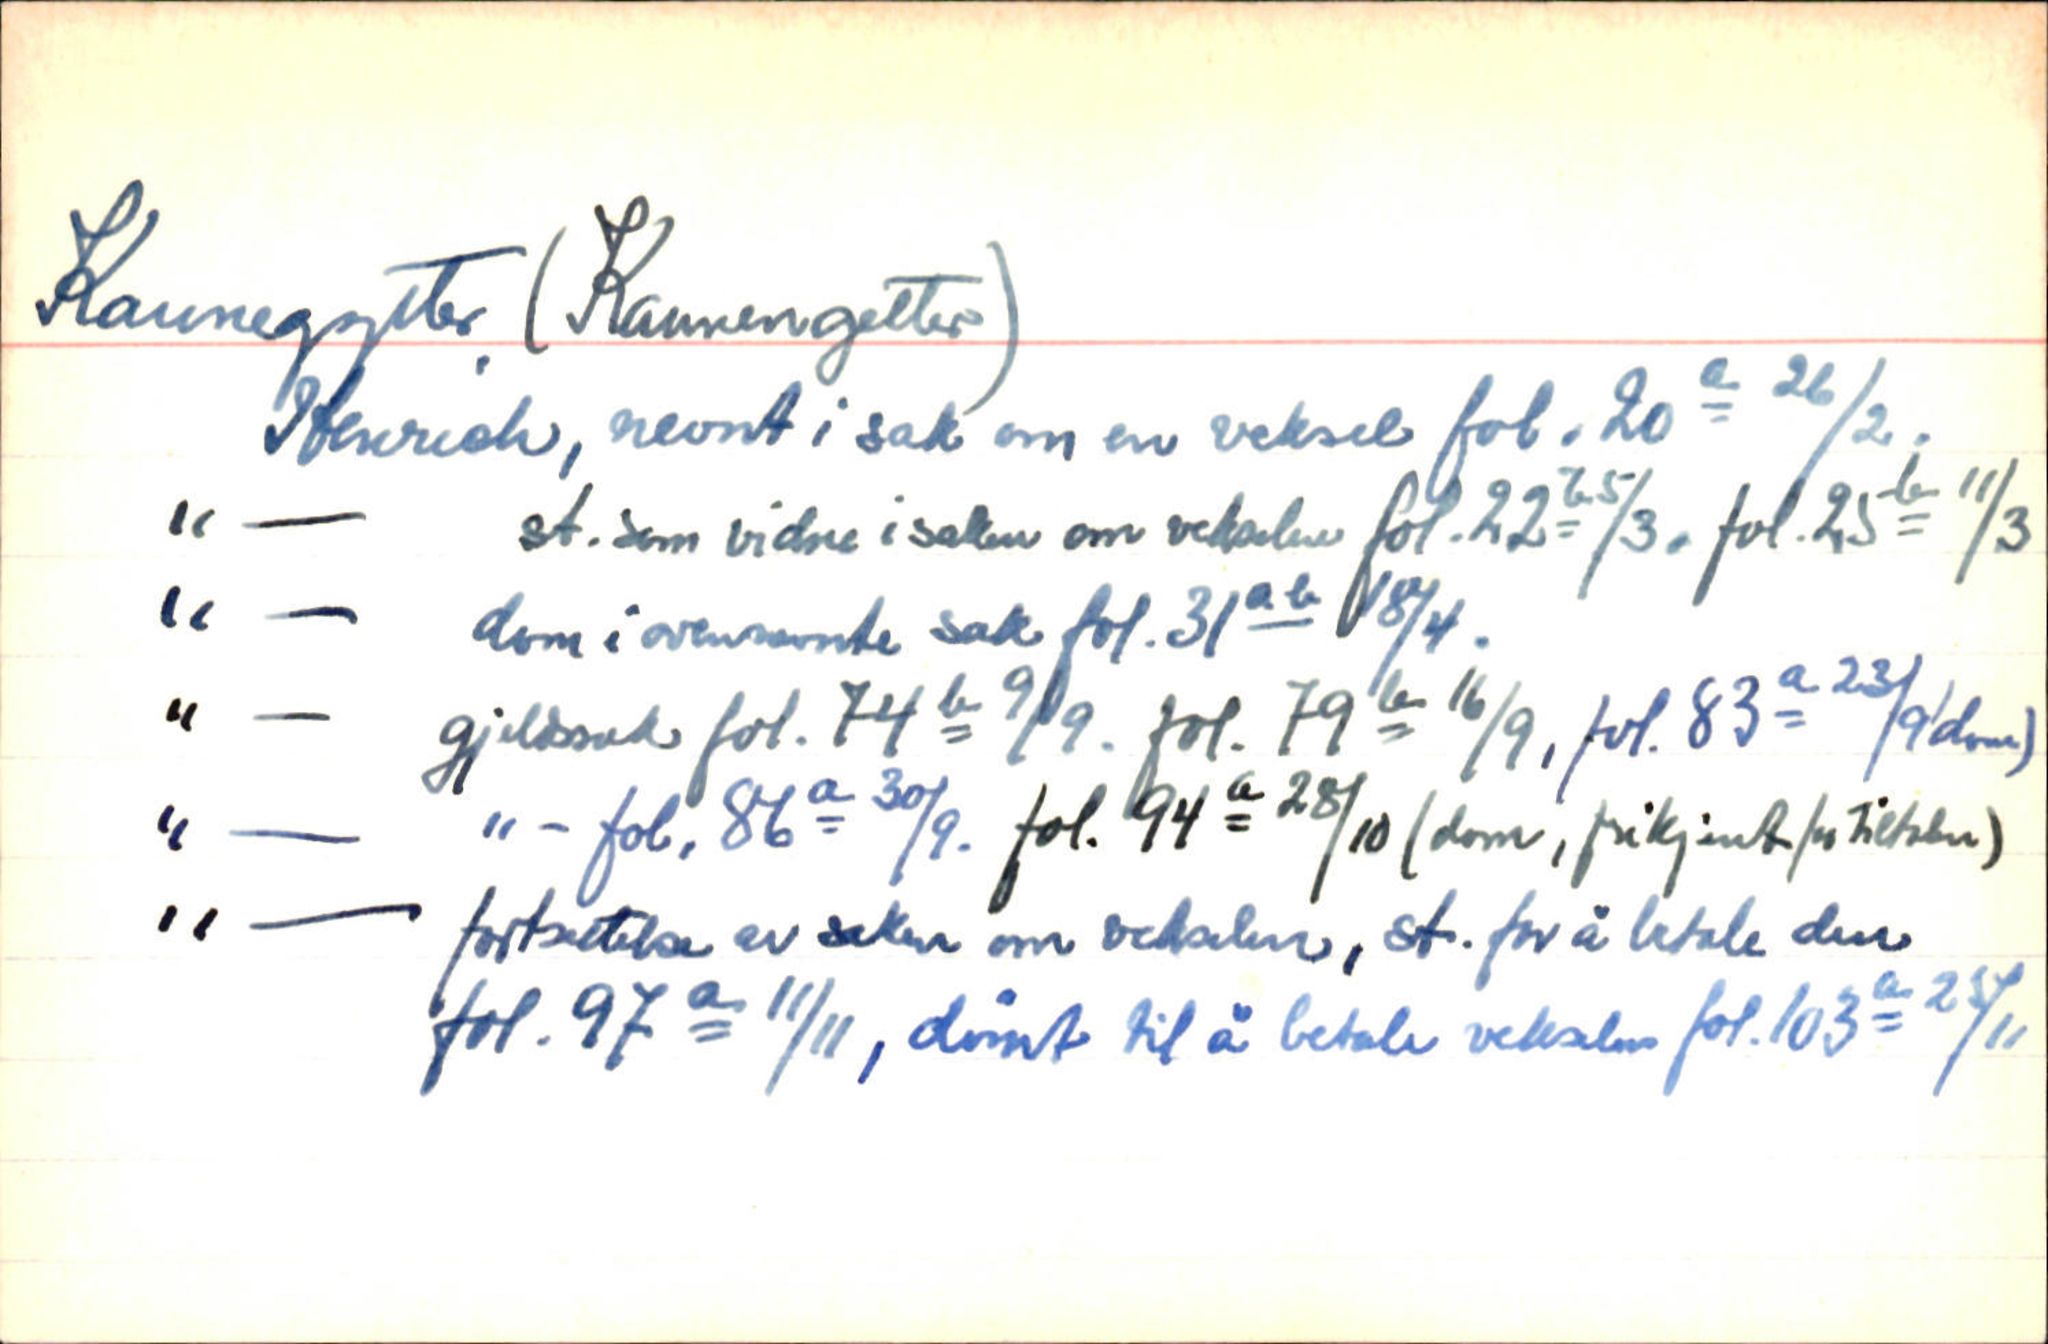 Kannegytter (Kannengetter)
Henrich, nevnt i sak om en veksel fol. 20 a 26/2.
" — st. som vidne i saken om vekselen fol. 22 b 5/3. fol. 25 b 11/3
" — dom i ovennevnte sak fol. 31 a b 18/4.
" — gjeldssak fol. 74 b 9/9. fol. 79 b 16/9, fol. 83 a 23/9 (dom)
" — " - fol. 86 a 30/9. fol. 94 a 28/10 (dom, frikjent for tiltalen)
" — fortsettelse av saken om vekselen, st. for å betale den
fol. 97 a 11/11, dømt til å betale vekselen fol. 103 a 25/11